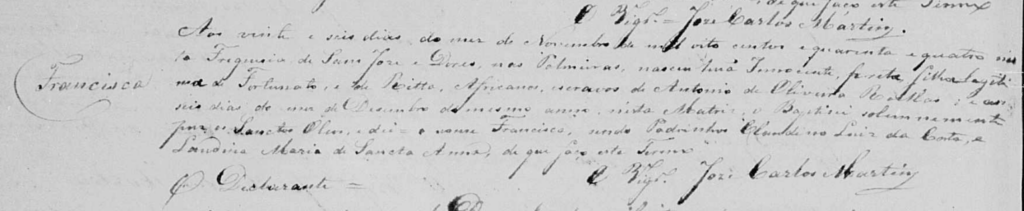 de que faço este Termo
O Vigr.º José Carlos Martins.
Aos vinte e seis dias do mez de Novembro de mil oito centos e quarenta e quatro nes
ta Freguesia de Sam Jose e Dores, nas Palmeiras, nasceu huã Innocente, preta, filha legiti
Francisca
ma de Fortunato, e de Ritta, Africanos, escravos de Antonio de Oliveira ; e aos
seis dias do mez de Dezembro do mesmo anno, nesta Matriz, o Baptizei solemnemente
puz os Sanctos Oleos, e dei-o o nome Francisca, sendo Padrinhos Claudino Luiz da Costa, e
Maria de Sancta Anna, de que faço este Termo
O Vigr.º José Carlos Martins
O Declarante =